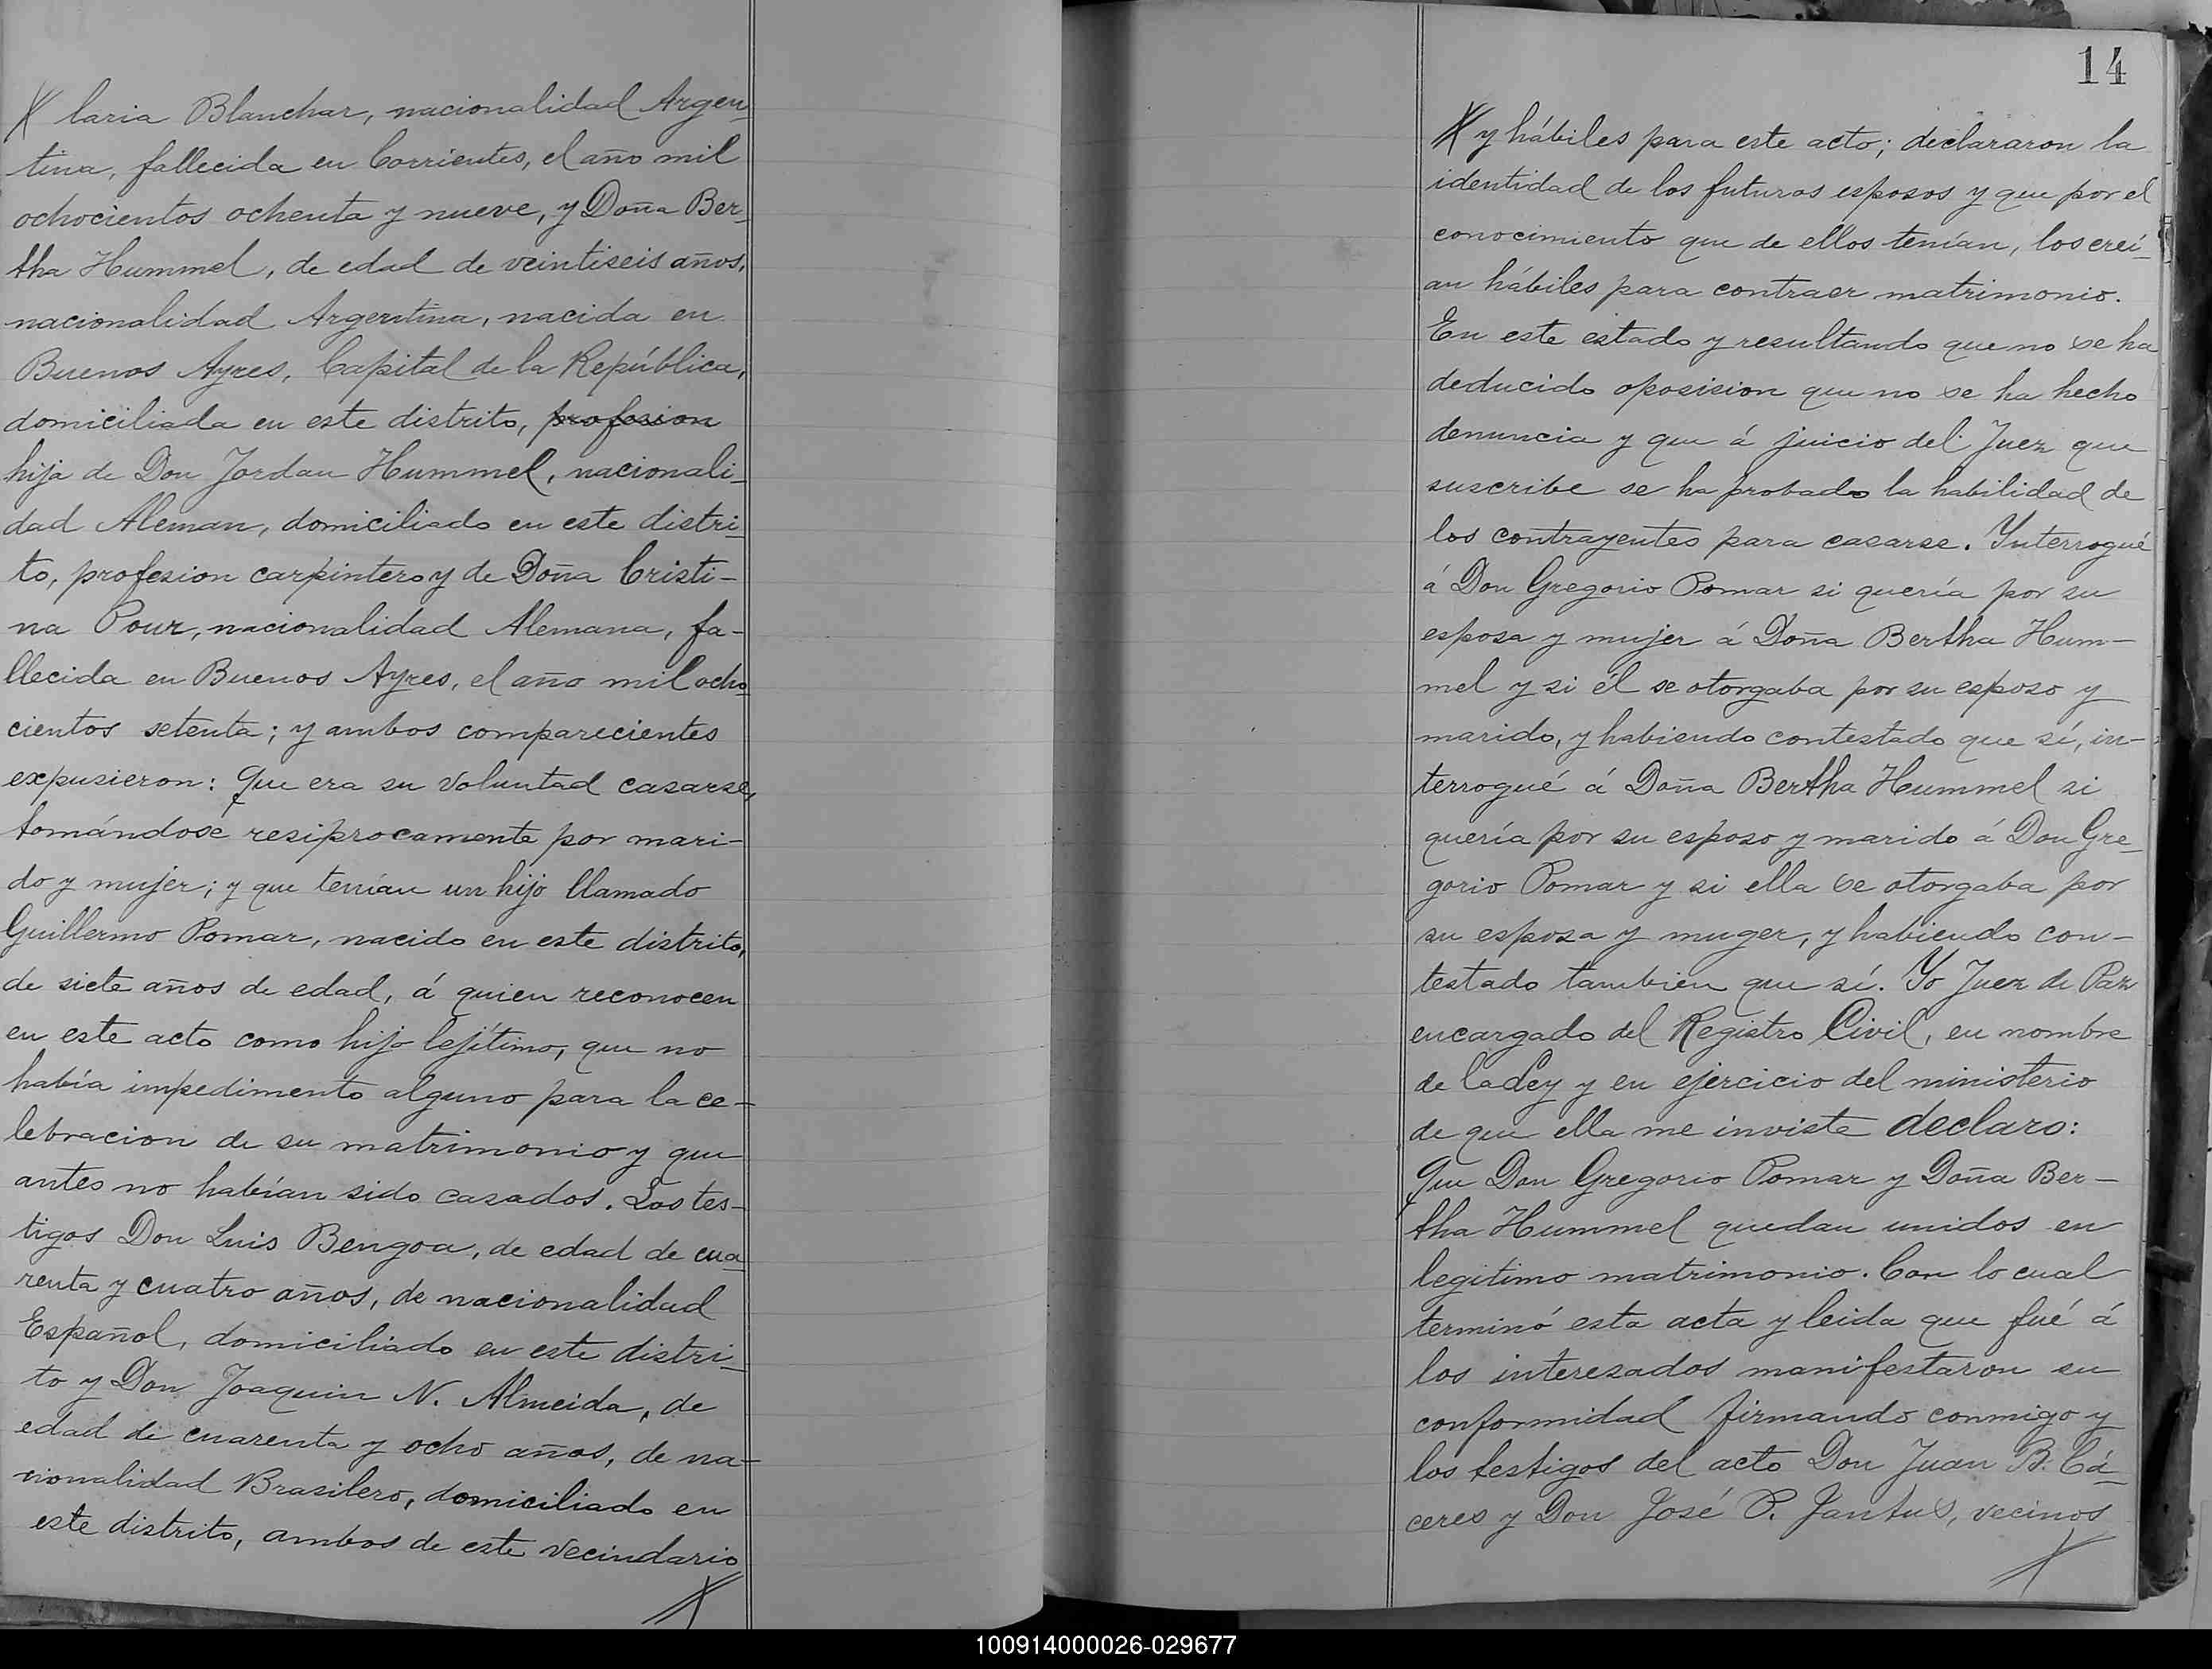 laria Blanchar, nacionalidad Argen_
tina, fallecida en Corrientes, el año mil
ochocientos ochenta y nueve, y Doña Ber_
tha Hummel, de edad de veintiseis años,
nacionalidad Argentina, nacida en
Buenos Ayres, Capital de la República,
domiciliada en este distrito, profesion
hija de Don Jordan Hummel, nacionali_
dad Aleman, domiciliado en este distri_
to, profesion carpintero y de Doña Cristi-
na Pour, nacionalidad Alemana, fa-
llecida en Buenos Ayres, el año mil ocho_
cientos setenta; y ambos comparecientes
expusieron: Que era su voluntad casarse,
tomándose resiprocamente por mari-
do y mujer; y que tenían un hijo llamado
Guillermo Pomar, nacido en este distrito,
de siete años de edad, á quien reconocen
en este acto como hijo lejítimo, que no
había impedimento alguno para la ce-
lebracion de su matrimonio y que
antes no habían sido casados. Los tes-
tigos Don Luis Bengoa, de edad de cua_
renta y cuatro años, de nacionalidad
Español, domiciliado en este distri_
to y Don Joaquin N. Almeida, de
edad de cuarenta y ocho años, de na-
cionalidad Brasilero, domiciliado en
este distrito, ambos de este vecindario
14
y hábiles para este acto; declararon la
identidad de los futuros esposos y que por el
conocimiento que de ellos tenían, los creí_
an hábiles para contraer matrimonio.
En este estado y resultando que no se ha
deducido oposision que no se ha hecho
denuncia y que á juicio del Juez que
suscribe se ha probado la habilidad de
los contrayentes para casarse. Ynterrogué
á Don Gregorio Pomar si quería por su
esposa y mujer á Doña Bertha Hum-
mel y si él se otorgaba por su esposo y
marido, y habiendo contestado que sí, in-
terrogué á Doña Bertha Hummel si
quería por su esposo y marido á Don Gre_
gorio Pomar y si ella se otorgaba por
su esposa y muger, y habiendo con-
testado tambien que sí. Yo Juez de Paz
encargado del Registro Civil, en nombre
de la Ley y en ejercicio del ministerio
de que ella me inviste declaro:
Que Don Gregorio Pomar y Doña Ber-
tha Hummel quedan unidos en
legítimo matrimonio. Con lo cual
terminó esta acta y leida que fué á
los interesados manifestaron su
conformidad firmando conmigo y
los testigos del acto Don Juan B. Cá_
ceres y Don José P. Jantus, vecinos
100914000026-029677